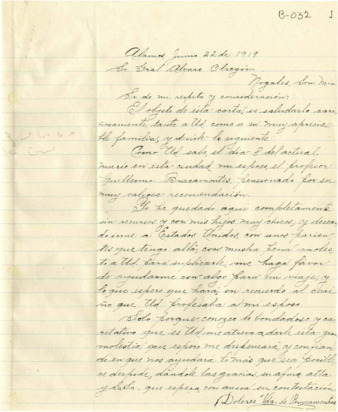 B-032
Alamos Junio 22 de 1919
Sr. Gral Alvaro Obregón
Nogales, Son Mex
Sr. de mi respeto y consideración:
El objeto de esta carta, es saludarlo cari
ñosamente, tanto a Ud como a su muy aprecia
ble familia, y decirle lo siguiente.
Como Ud sabe el día 8 del actual
murió en esta ciudad mi esposo el profesor
Guillermo Bracamontes, por su
muy valiosa recomendación.
Yo he quedado aquí completamente
sin recursos y con mis hijos muy chicos, y deseo
de irme a Estados Unidos con unos parien
tes que tengo allá, con mucha pena moles
to a Ud para suplicarle, me haga favor
de ayudarme con algo para mi viaje, y
lo que espero que hará en recuerdo al cari
ño que Ud profesaba a mi esposo.
Solo porque conozco lo bondadoso y ca
ritativo que es Ud, me atrevo a darle esta
molestia, que espero me dispensará y confian
do en que nos ayudará lo más que sea posible
se despide, dándole las gracias su afma atta
y S.S. que espera con ansia su contestación
Dolores Vda. de Bracamontes